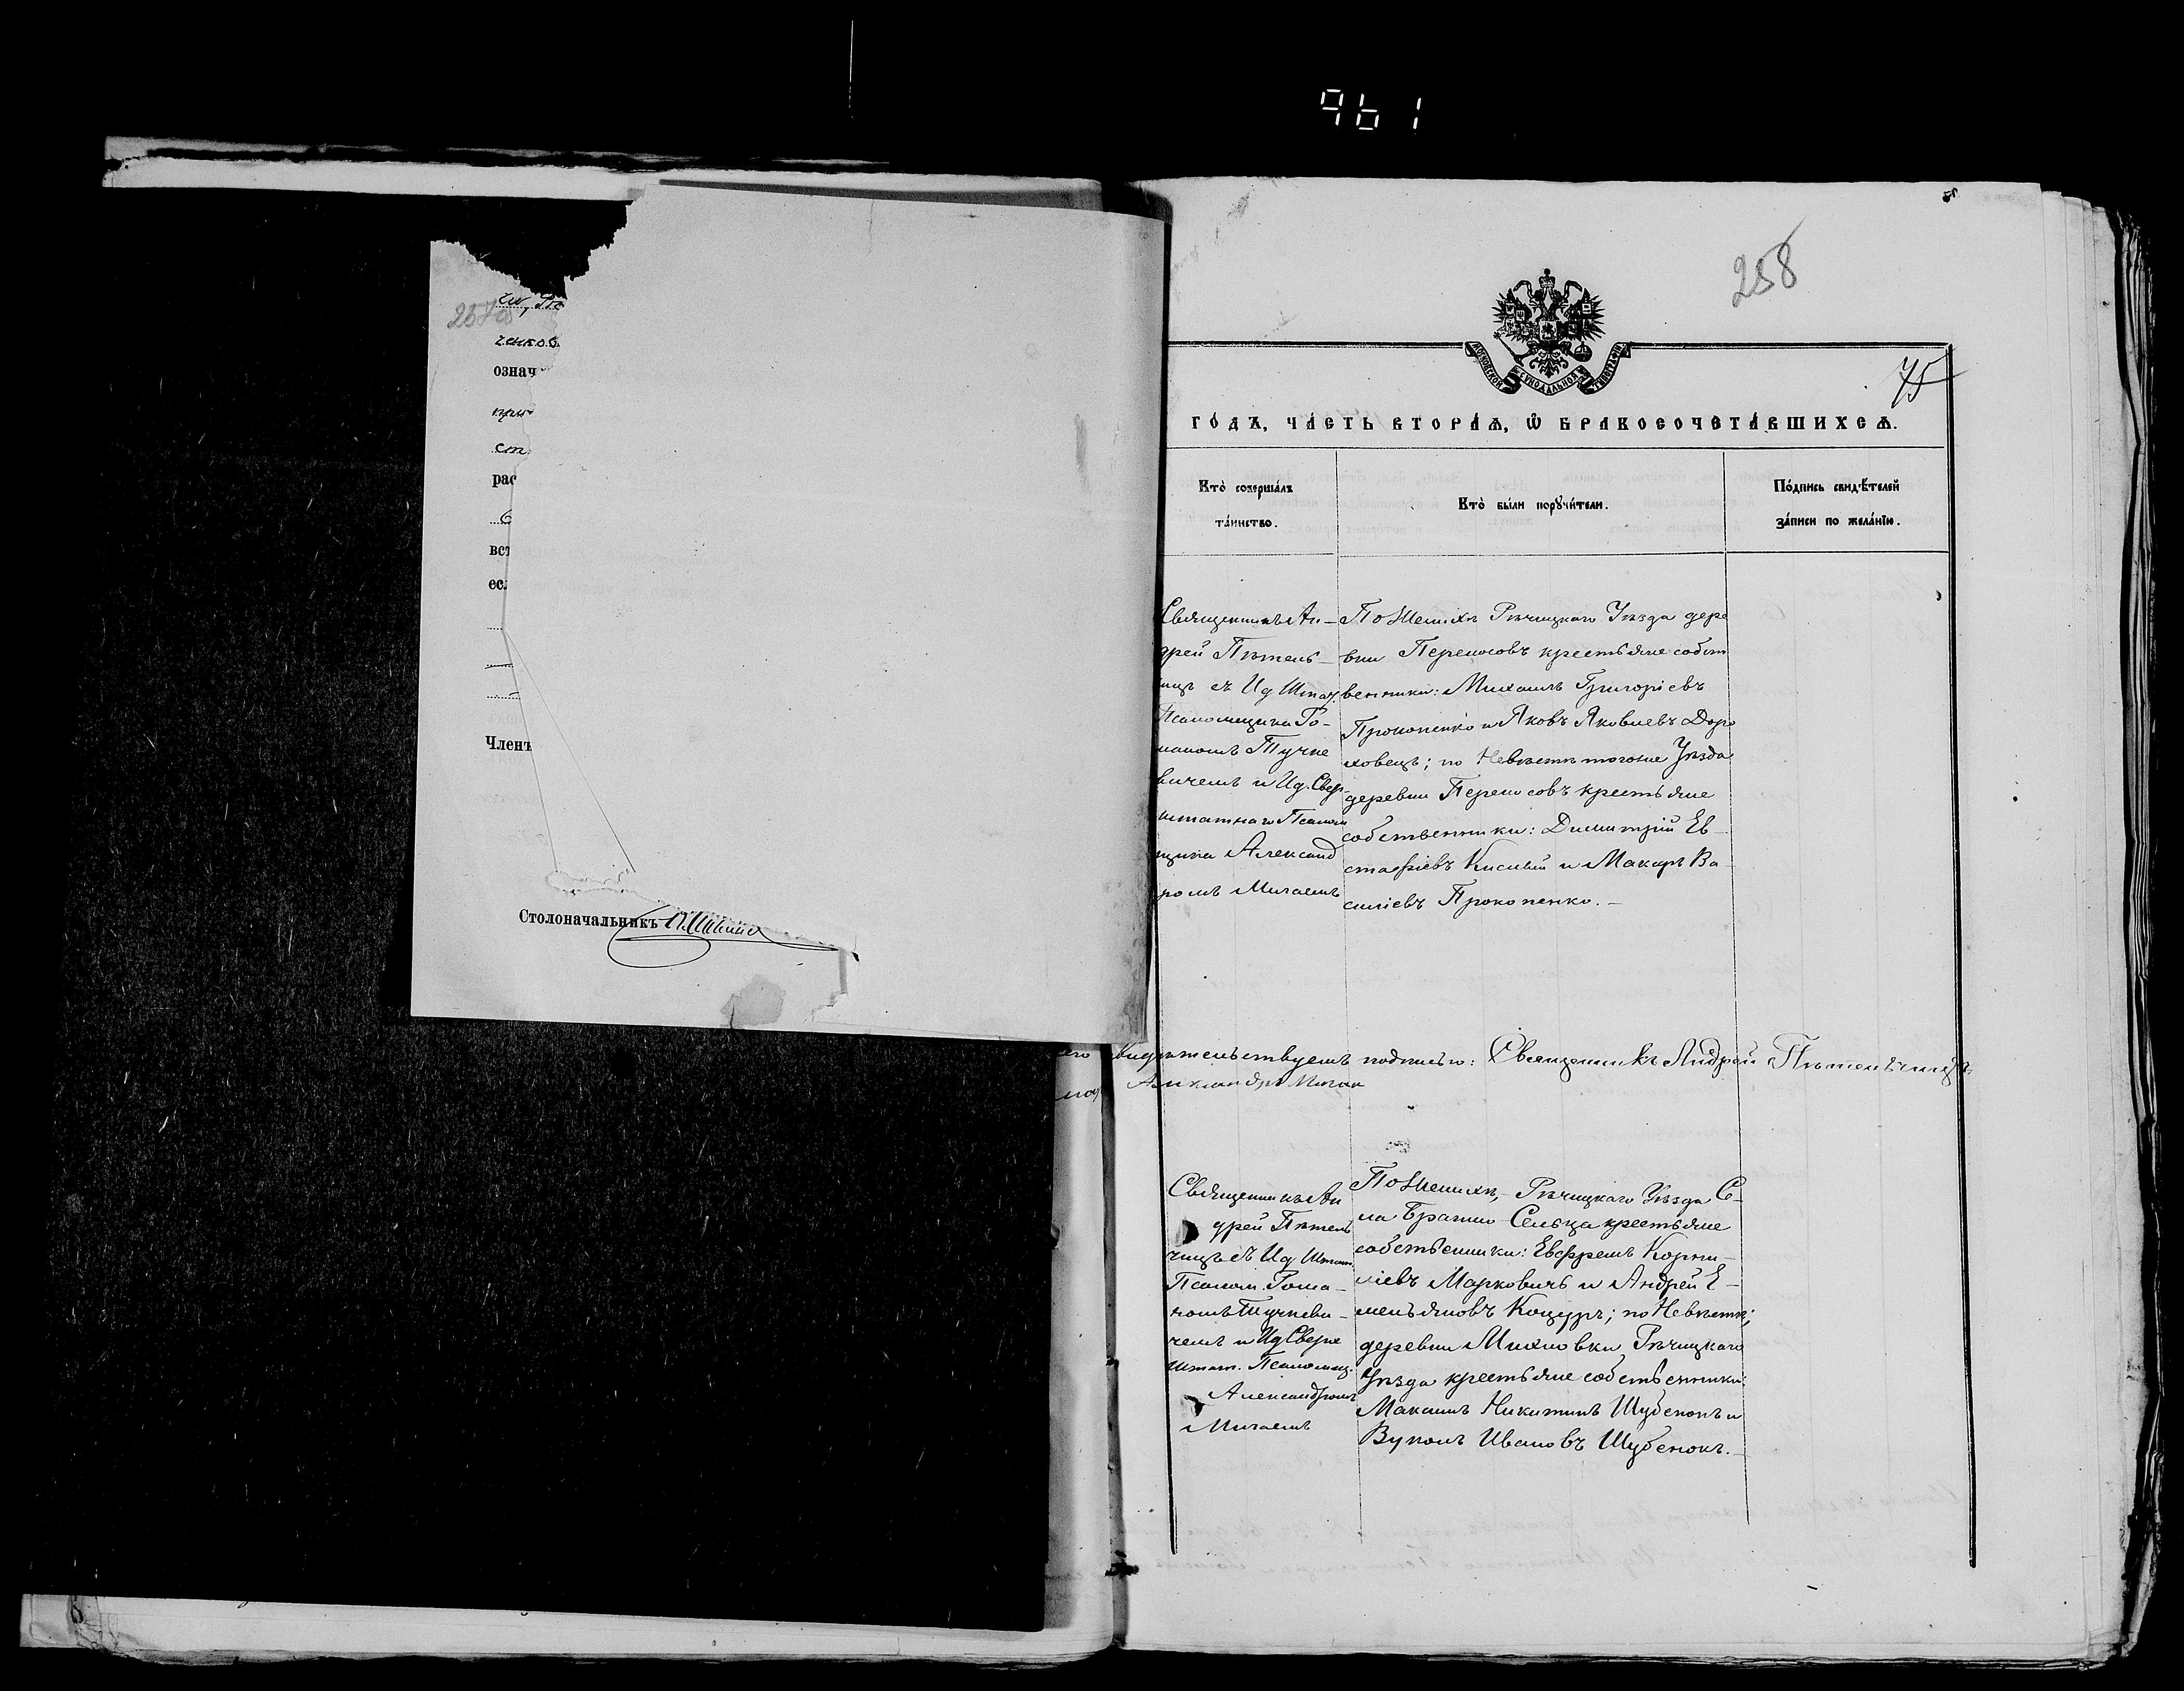 961
257 об
ченков
означ
при
ст
рас
вст
ес
Членъ
Столоначальникъ
258
75
МОСКОВСКОЙ СѴНОДАЛЬНОЙ ТИПОГРАФІИ
ГО́ДЪ, ЧА́СТЬ ВТОРА́Я, Ѽ БРАКОСОЧЕТА́ВШИХСЯ.
Кто̀ совершáлъ
тáинство.
Кто̀ были порꙋчи́тели.
По́дпись свидѣ́телей
зáписи по желáнїю.
Священникъ Ан-
дрей Пѣтель-
чицъ съ Ид Штат.
Псаломщика Ро-
маномъ Тучке
вичемъ и Ид. Свер-
штатнаго Псалом
щика Александ
ромъ Мигаемъ
По Женихѣ Рѣчицкаго Уѣзда дере
вни Переносовъ крестьяне собст
венники: Михаилъ Григоріевъ
Прокопенко и Яковъ Яковлевъ Доро
ховецъ; по Невѣстѣ тогоже Уѣзда
деревни Переносовъ крестьяне
собственники: Димитрій Ев-
стафіевъ Кислый и Макаръ Ва-
силіевъ Прокопенко.-
свидѣтельствуемъ подписью: Священникъ Андрей Пѣтельчицъ
Александръ Мигай
Священникъ Ан
дрей Пѣтель
чицъ съ Ид Штат
Псалом. Рома-
номъ Тучкеви-
чемъ и Ид Сверх
штат. Псаломщ.
Александромъ
Мигаемъ
По Женихѣ,- Рѣчицкаго Уѣзда Се-
ла Брагино Сельца крестьяне
собственники: Евфремъ Корни-
ліевъ Марковичъ и Андрей Е-
мельяновъ Коцуръ; по Невѣстѣ;
деревни Михновки Рѣчицкаго
Уѣзда крестьяне собственники:
Максимъ Никитинъ Шубенокъ и
Вуколъ Ивановъ Шубенокъ.-